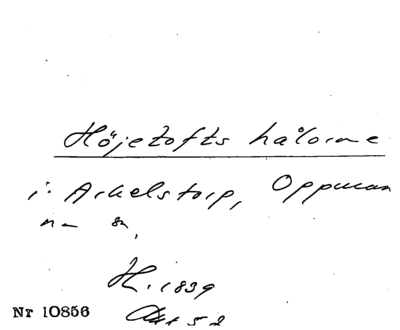 Höjetofts hålorne
i Arkelstorp, Oppman
na sn.
H. 1839
Nr 10856